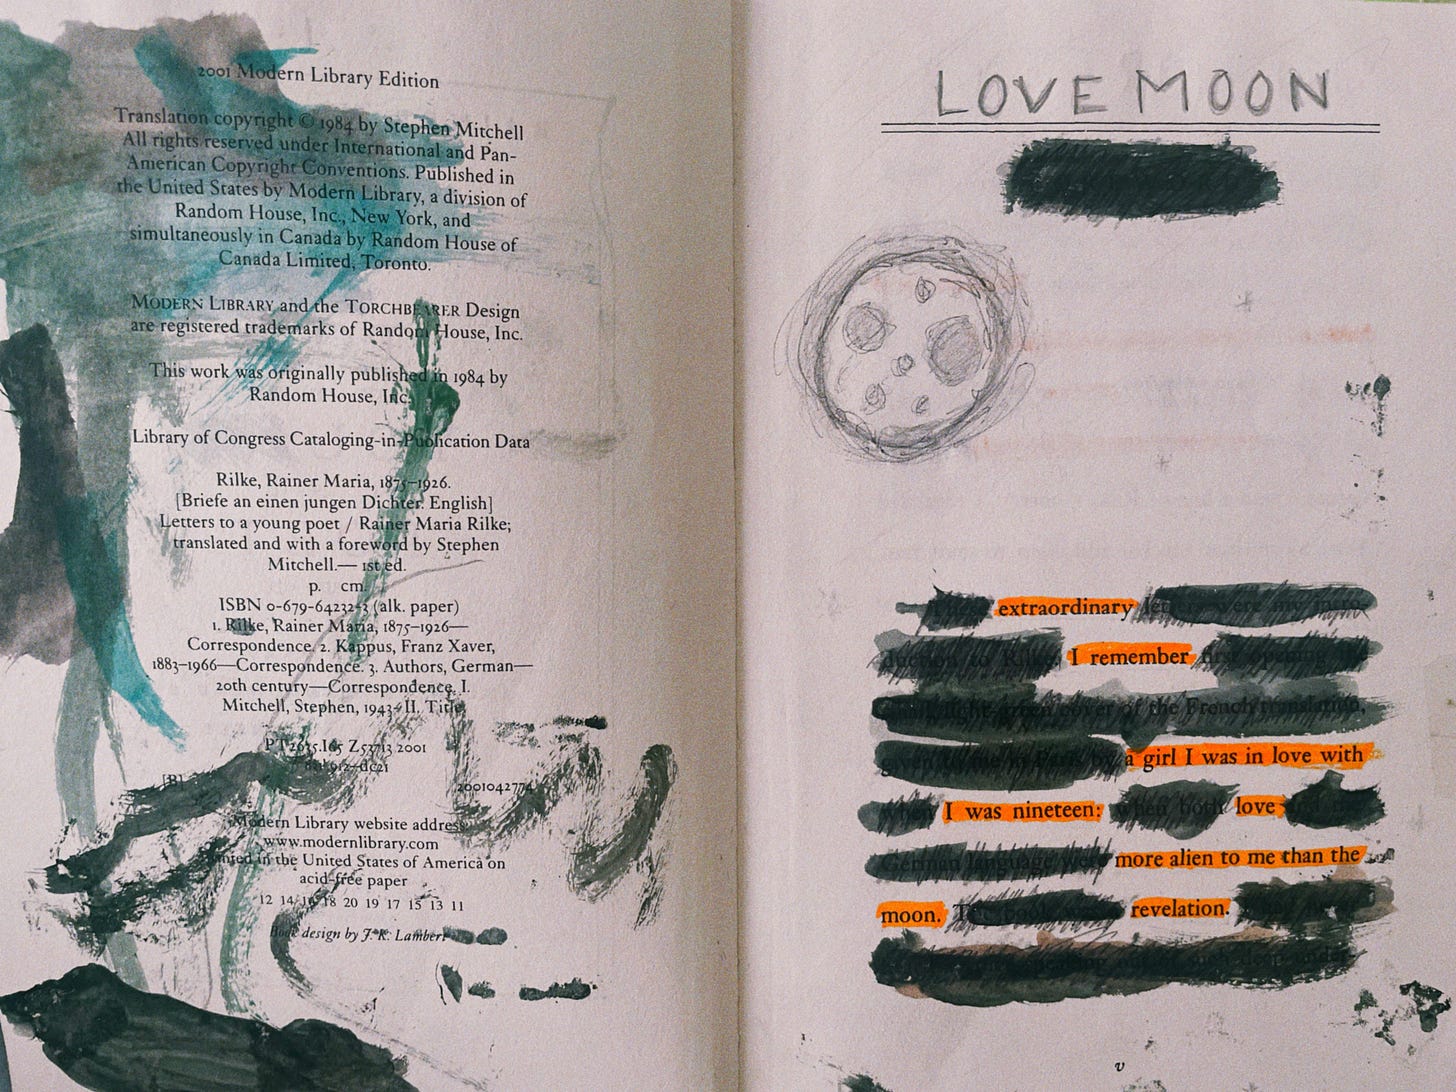 2001 Modern Library Edition
Translation copyright © 1984 by Stephen Mitchell
All rights reserved under International and Pan-
American Copyright Conventions. Published in
the United States by Modern Library, a division of
Random House, Inc., New York, and
simultaneously in Canada by Random House of
Canada Limited, Toronto.
MODERN LIBRARY and the TORCHBEARER Design
are registered trademarks of Random House, Inc.
This work was originally published in 1984 by
Random House, Inc.
Library of Congress Cataloging-in-Publication Data
Rilke, Rainer Maria, 1875–1926.
[Briefe an einen jungen Dichter. English]
Letters to a young poet / Rainer Maria Rilke;
translated and with a foreword by Stephen
Mitchell.— 1st ed.
p. cm.
ISBN 0-679-64232-3 (alk. paper)
1. Rilke, Rainer Maria, 1875–1926—
Correspondence. 2. Kappus, Franz Xaver,
1883–1966—Correspondence. 3. Authors, German—
20th century—Correspondence. I.
Mitchell, Stephen, 1943– II. Title.
PT2635.I65 Z53713 2001
2001042774
Modern Library website address:
www.modernlibrary.com
Printed in the United States of America on
acid-free paper
12 14 16 18 20 19 17 15 13 11
Book design by J. K. Lambert
LOVE MOON
extraordinary letters were my intro-
duction to Rilke. I remember first opening
light-green cover of the French translation,
given to me in Paris by a girl I was in love with
when I was nineteen: when both love
German language were more alien to me than the
moon. The revelation.
such deep under-
v